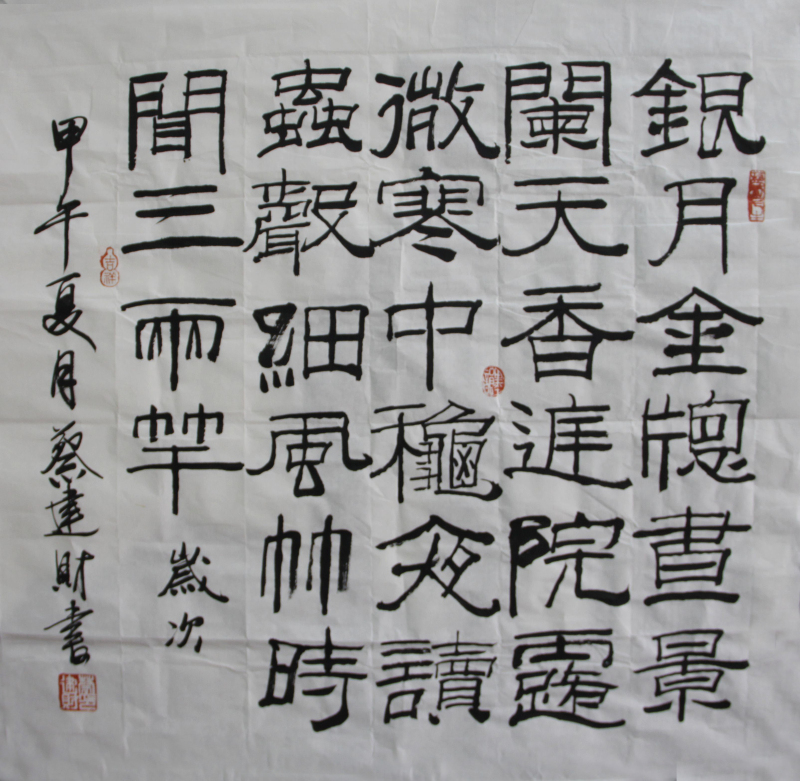 銀月金牕晝景
闌天香進院露
微寒中龝夜讀
蟲聲細風竹時
聞三兩竿歲次
甲午夏月蔡建財書